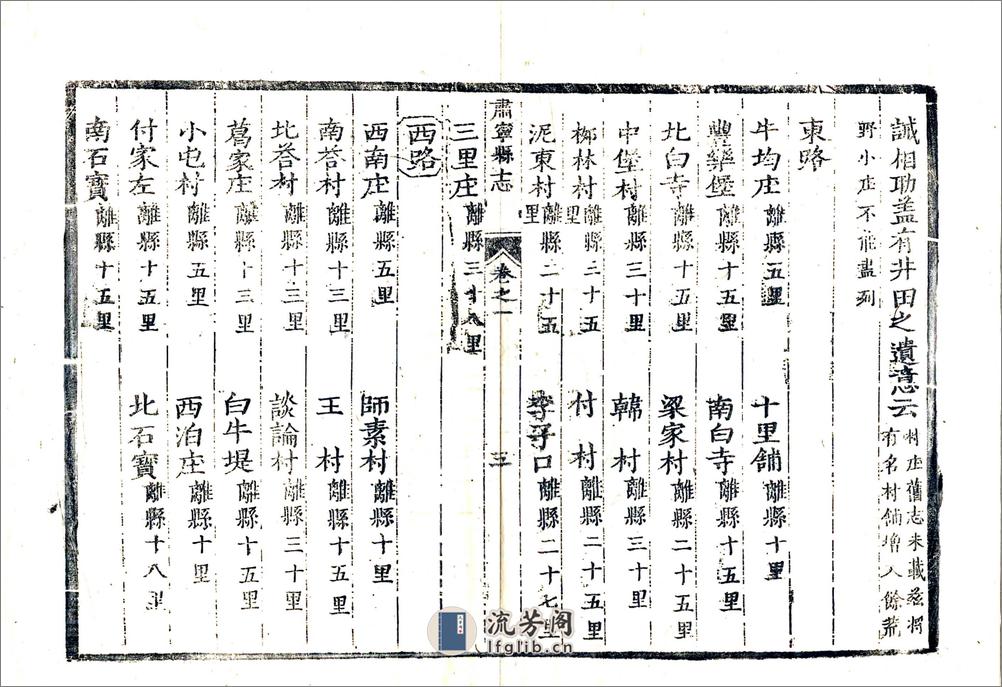 誠相助蓋有井田之遺意云村庄舊志未載茲將有名村舖增入餘荒
野小庄不能盡列
東路
牛均庄離縣五里 十里舖離縣十里
豐樂堡離縣十五里 南白寺離縣十五里
北白寺離縣十五里 梁家村離縣二十五里
中堡村離縣三十里 韓村離縣三十里
柳林村離縣三十五里 付村離縣二十五里
泥東村離縣二十五里 李子口離縣二十七里
肅寧縣志 卷之一 三
三里庄離縣三十八里
西路
西南庄離縣五里 師素村離縣十里
南答村離縣十三里 王村離縣十五里
北答村離縣十三里 談論村離縣三十里
葛家庄離縣十三里 白牛堤離縣十五里
小屯村離縣五里 西泊庄離縣十里
付家左離縣十五里 北石寶離縣十八里
南石寶離縣十五里
流芳阁
lfglib.cn